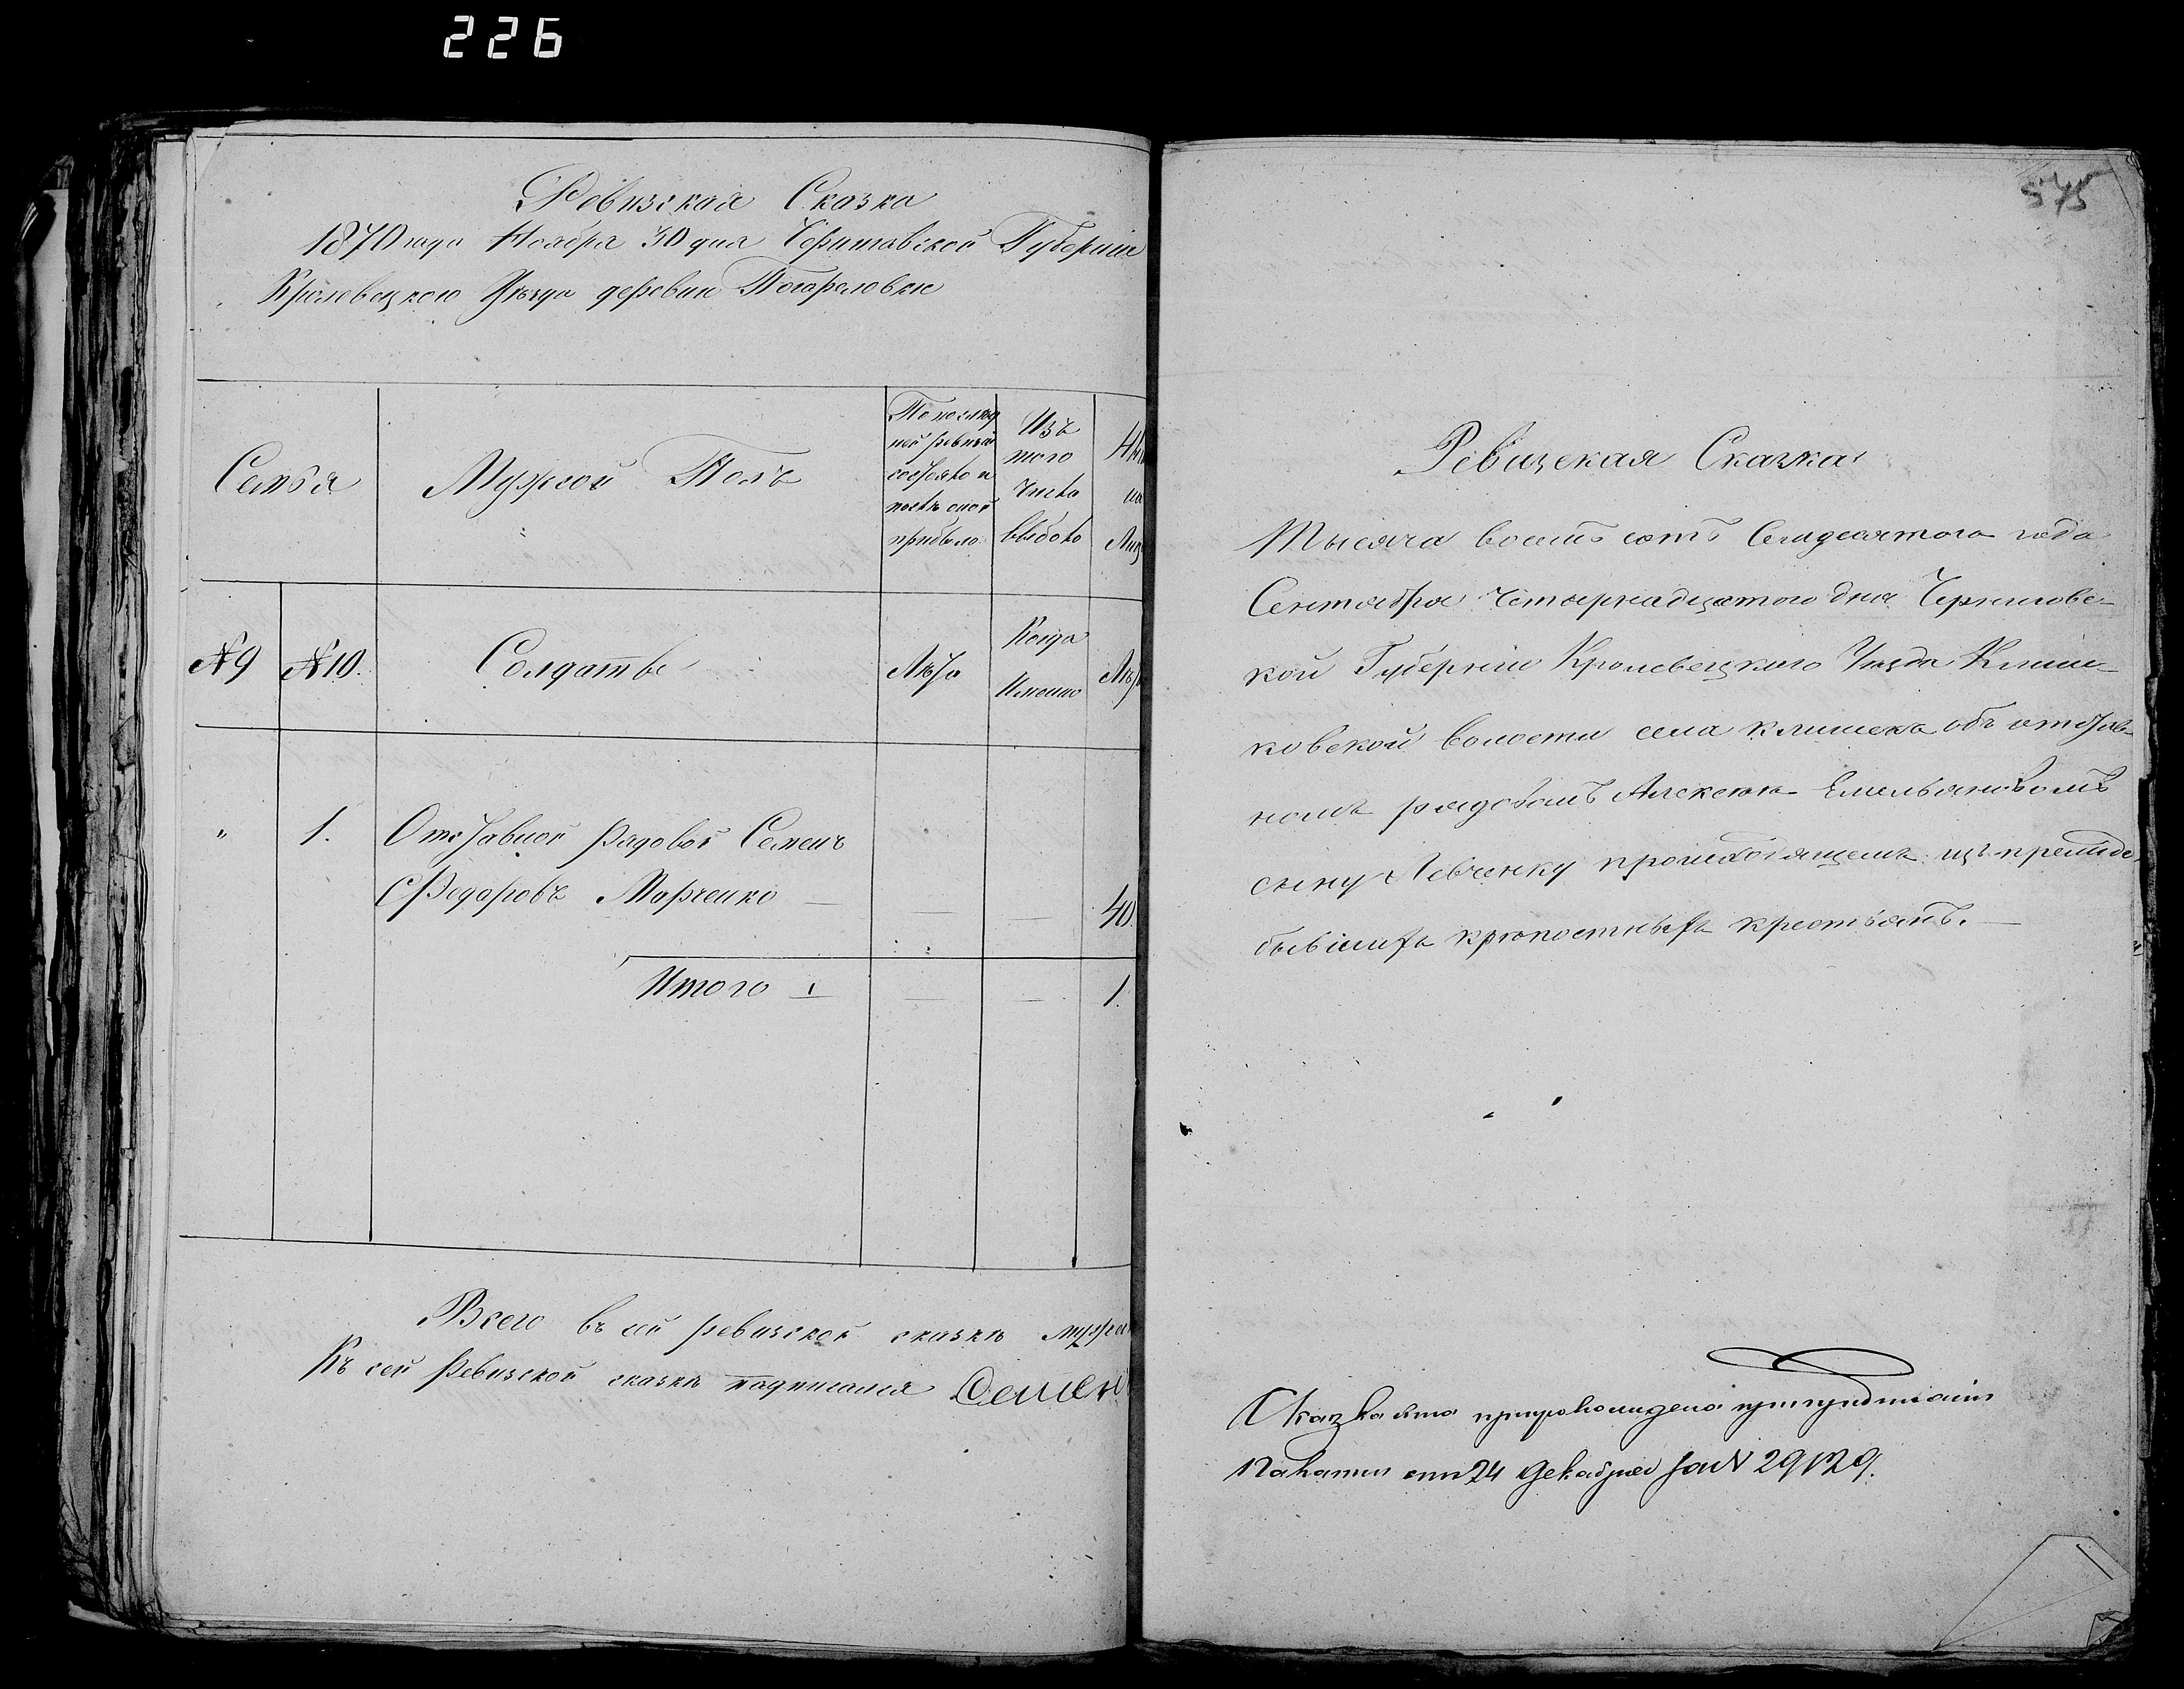 226
Ревизская Сказка
1870 года Ноября 30 дня Черниговской Губерніи
Кролевецкого Уѣзда деревни Погореловки
Семья
Мужской Полъ
По послѣд
ней ревизіи
состояло и
послѣ оной
прибыло
Изъ
того
числа
выбыло
Ны
на
Лиц
№ 9
№ 10.
Солдатъ
Лѣта
Когда
Именно
Лѣт
" 1. Отставной рядовой Семенъ
Федоровъ Марченко — — — 40.
Итого 1 — — 1.
Всего въ сей ревизской сказкѣ муже
Къ сей Ревизской сказкѣ подписался Семен
575
Ревизская Сказка
Тысяча восемь сотъ Семдесятого года
Сентября четырнадцатого дня Черниговс-
кой Губерніи Кролевецкого Уѣзда Клиш-
ковской волости села Клишекъ объ отстав-
номъ рядовомъ Алексеѣ Емельяновомъ
сыну Левченку происходящемъ изъ прежде
бывшихъ крѣпостныхъ крестьянъ. —
Сказка эта препровождена при
Палаты отъ 24 Декабря за N 29129.